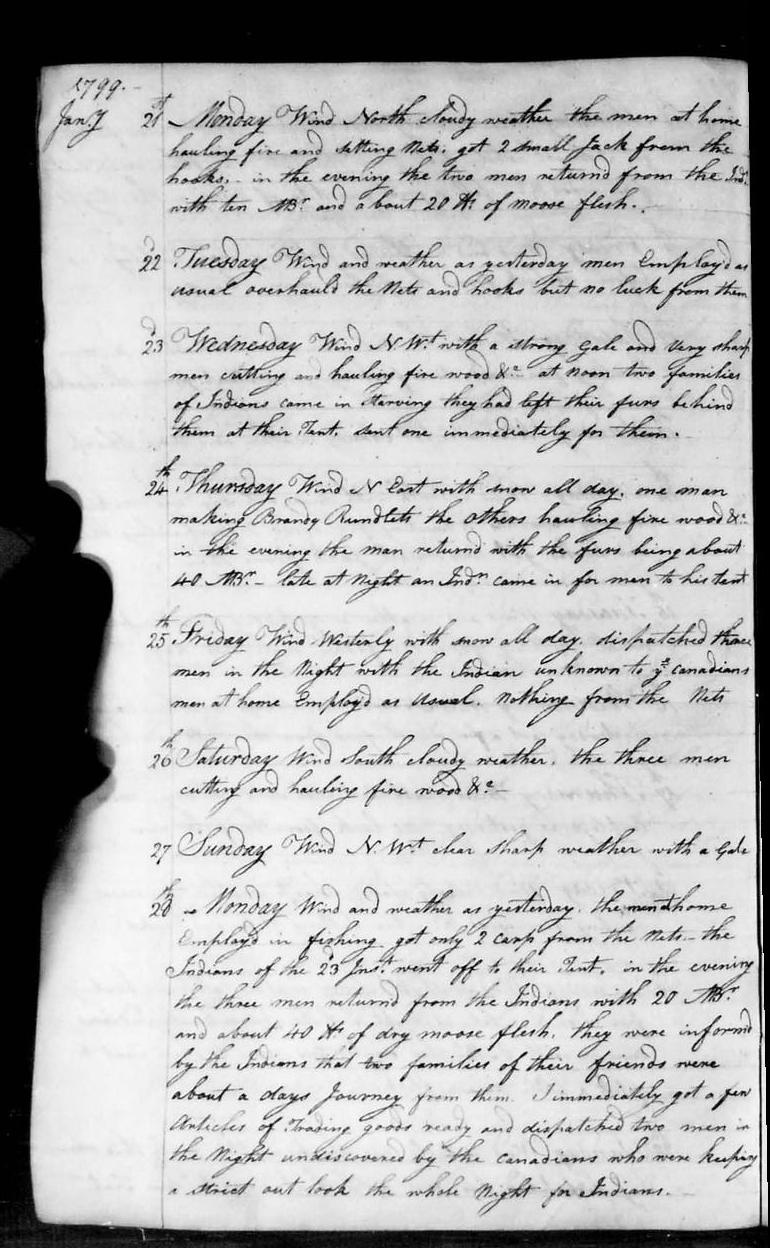 1799.
Jan.y 21st Monday Wind North cloudy weather the men at home
hauling fire and setting Nets. got 2 small Jack from the
hooks. - in the evening the two men returnd from the Inds.
with ten MBr. and about 20 lbs of moose flesh.
22d Tuesday Wind and weather as yesterday men Employ'd as
usual overhauld the Nets and hooks but no luck from them
23d Wednesday Wind N.Wt. with a strong Gale and Very sharp
men cutting and hauling fire wood &c. at Noon two families
of Indians came in starving they had left their furs behind
them at their Tent. sent one immediately for them.
24th Thursday Wind N East with snow all day. one man
making Brandy Rundlets the others hauling fire wood &c.
in the evening the man returnd with the furs being about
40 MBr. - late at Night an Indn. came in for men to his tent
25th Friday Wind Westerly with snow all day. dispatched three
men in the Night with the Indian unknown to ye. Canadians
men at home Employd as Usual. Nothing from the Nets
26th Saturday Wind South cloudy weather. the three men
cutting and hauling fire wood &c. -
27 Sunday Wind N.Wt. clear sharp weather with a Gale
28th - Monday Wind and weather as yesterday. the men at home
Employd in fishing got only 2 carp from the Nets - the
Indians of the 23d Inst. went off to their Tent. in the evening
the three men returnd from the Indians with 20 MBr.
and about 40 lbs of dry moose flesh. they were informd
by the Indians that two families of their friends were
about a days Journey from them. I immediately got a few
Articles of Trading goods ready and dispatched two men in
the Night undiscovered by the Canadians who were keeping
a strict out look the whole Night for Indians.